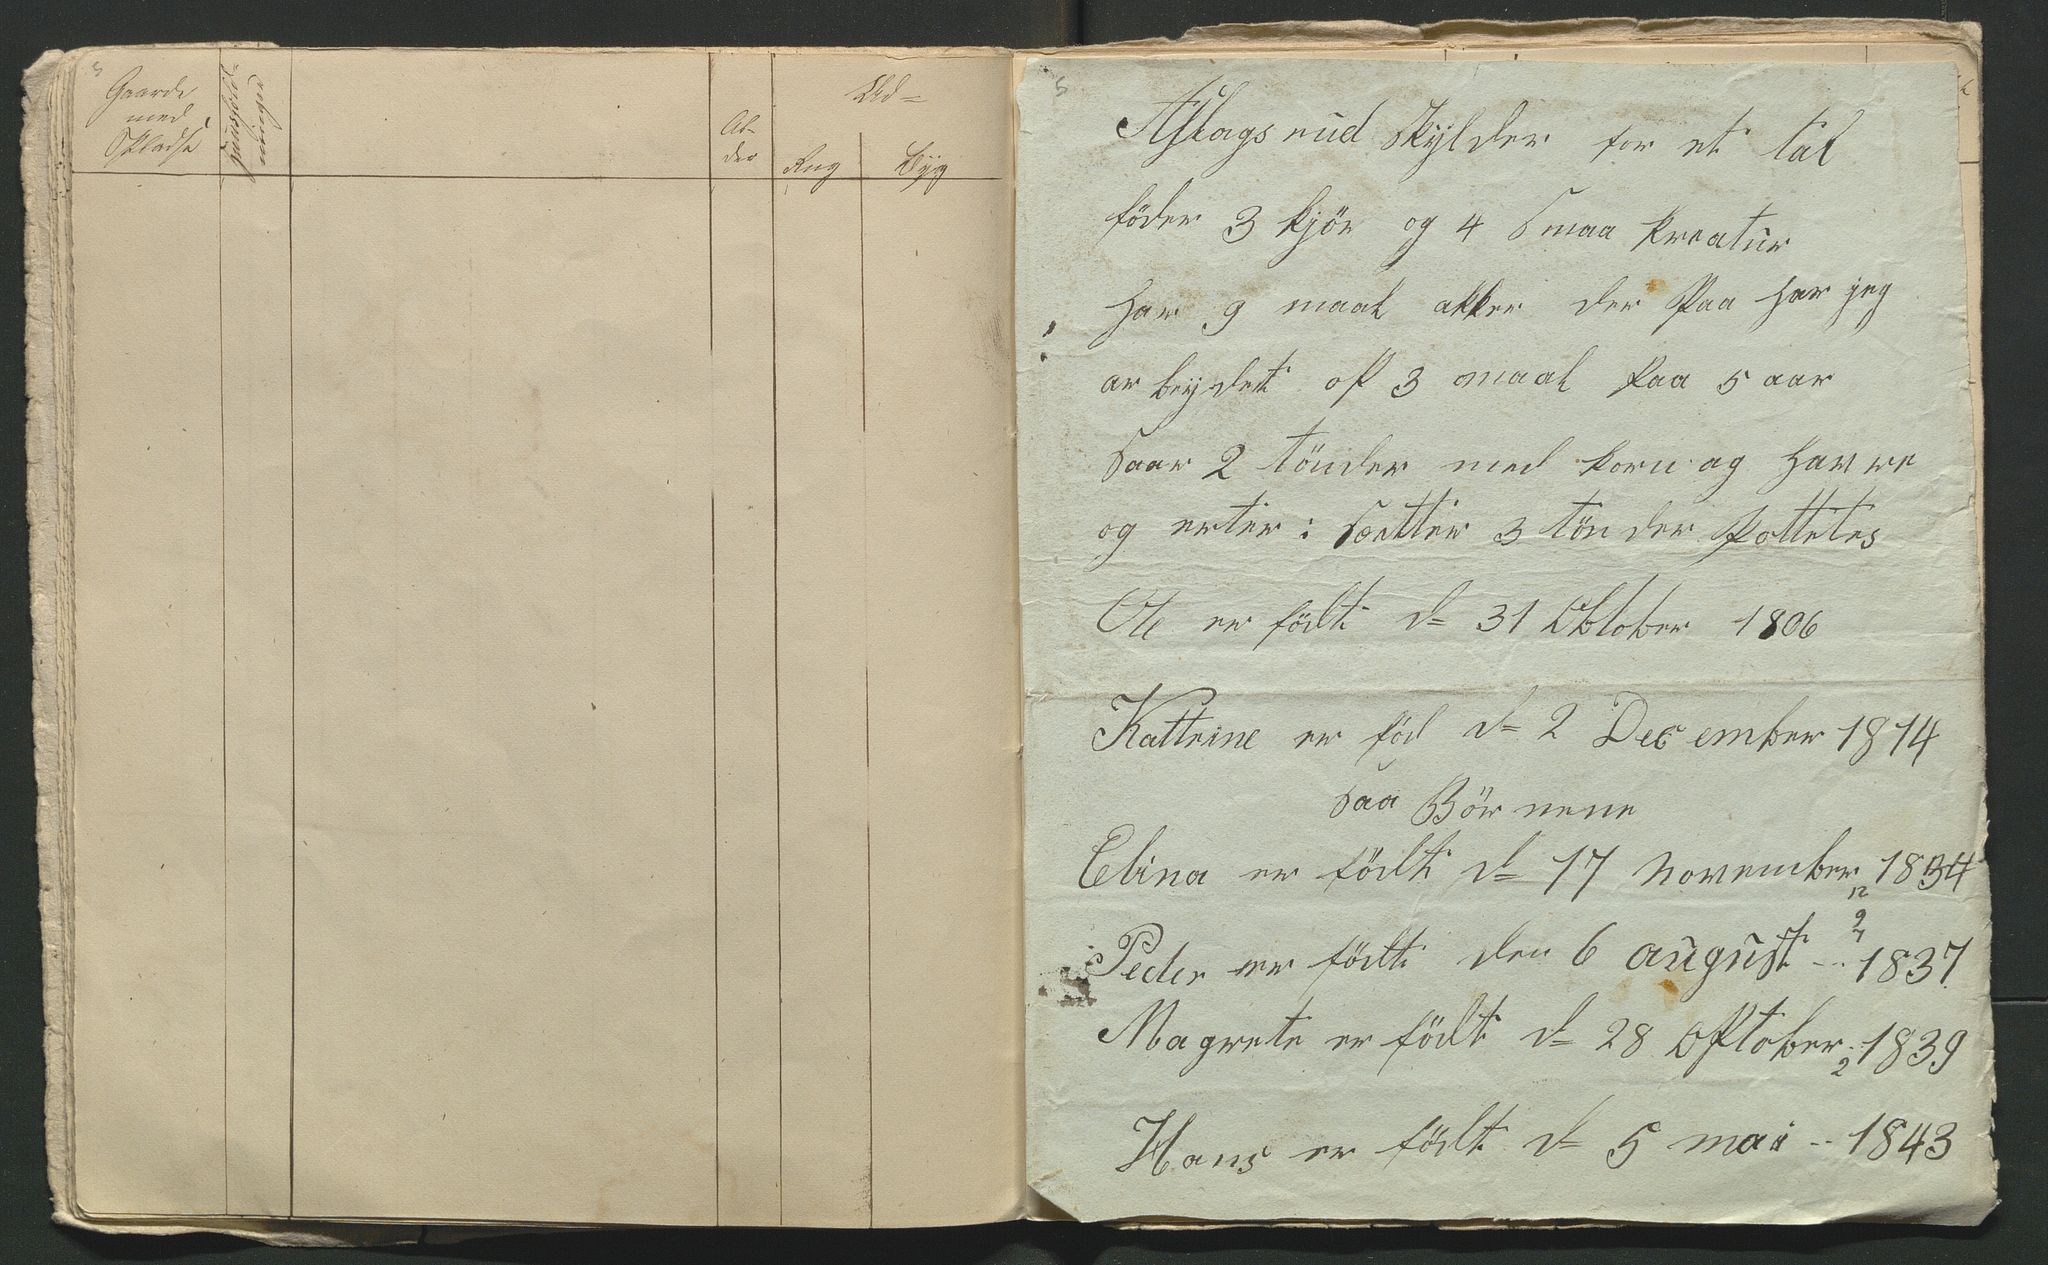 5
Gaarde
med
Pladse
Huusholdninger
Al-
der
Ud=
Rug
Byg
5
Aslagsrud skylder for et tal
föder 3 kjör og 4 Smaa kreatur
har 9 maal akker der Paa har jeg
arbeydet op 3 maal paa 5 aar
Saar 2 tönder med korn og havre
og erter: Sætter 3 tönder Pottetes
Ole er födt d= 31 Oktober 1806
Kattrine er föd d= 2 December 1814
saa Börnene
Elina er födt d= 17 november 1834
12
9
7
Peder er födt den 6 august -- 1837
Magrete er födt d= 28 Oktober - 1839
2
Hans er födt d= 5 mai -- 1843